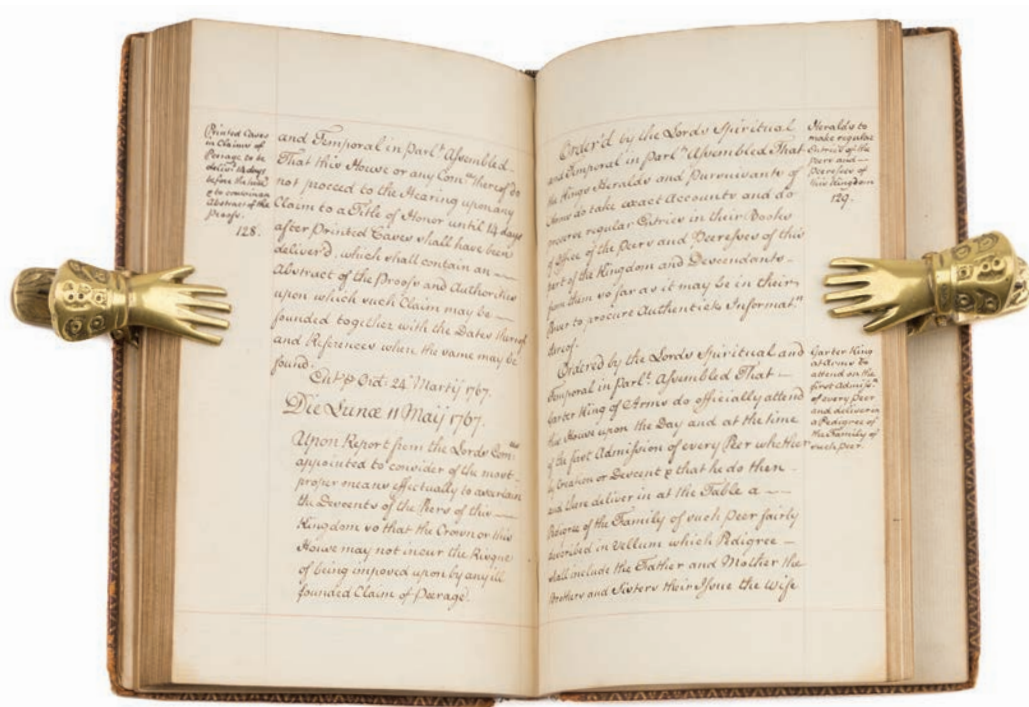 Printed Cases
in Claims of
Peerage to be
deliv.d 14 days
before the
& to contain an
Abstract of the
Proofs.
128.
and Temporal in Parl.t Assembled
That this House or any Com.ee thereof do
not proceed to the Hearing upon any
Claim to a Title of Honor until 14 days
after Printed Cases shall have been
deliver'd, which shall contain an —
Abstract of the Proofs and Authorities
upon which such Claim may be —
founded together with the Dates thereof
and References where the same may be
found.
Ent.d Ord: 24.o Martij 1767.
Die Lunæ 11 Maij 1767.
Upon Report from the Lords Com.ees
appointed to consider of the most
proper means effectually to ascertain
the Descents of the Peers of this —
Kingdom so that the Crown or this
House may not incur the Risque
of being imposed upon by any ill
founded Claim of Peerage.
Order'd by the Lords Spiritual
and Temporal in Parl.t Assembled That
the Kings Heralds and Pursuivants of
Arms do take exact Accounts and do
preserve regular Entries in their Books
of Office of the Peers and Peeresses of this
part of the Kingdom and Descendants
from them so far as it may be in their
Power to procure Authentick Informat.n
thereof.
Heralds to
make regular
Entries of the
Peers and —
Peeresses of
this Kingdom
129.
Ordered by the Lords Spiritual and
Temporal in Parl.t Assembled That —
Garter King of Arms do officially attend
this House upon the Day and at the time
of the first Admission of every Peer whether
by Creation or Descent & that he do then
and there deliver in at the Table a —
Pedigree of the Family of such Peer fairly
described in Vellum which Pedigree —
shall include the Father and Mother the
Brothers and Sisters their Issue the Wife
Garter King
at Arms to
attend on the
first Admiss.n
of every Peer
and deliver in
a Pedigree of
the Family of
such Peer.